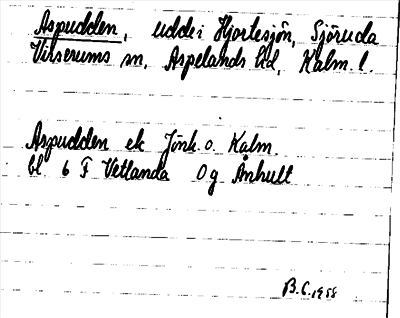 Aspudden, udde i Hjortesjön, Sjöruda
Virserums sn, Aspelands hd, Kalm. l.
Aspudden ek Jönk. o. Kalm.
bl 6 F Vetlanda 0g Ånhult
B.C. 1958